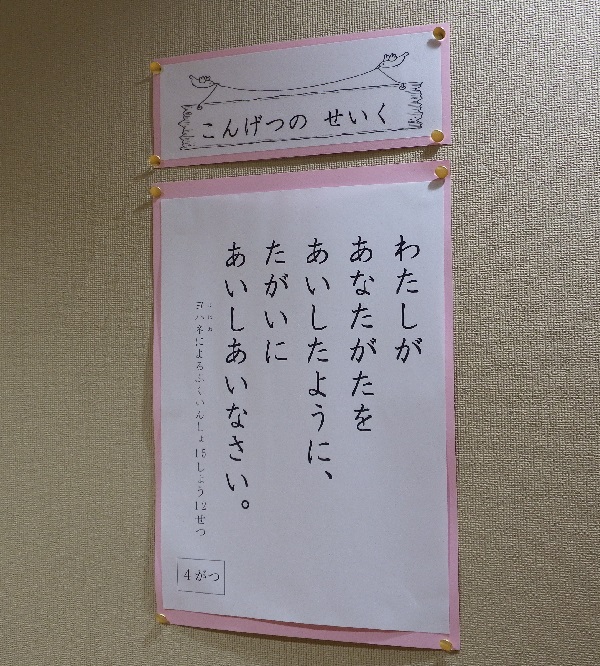 こんげつの せいく
わたしが
あなたがたを
あいしたように、
たがいに
あいしあいなさい。
ヨハネによるふくいんしょ 15しょう12せつ
4がつ